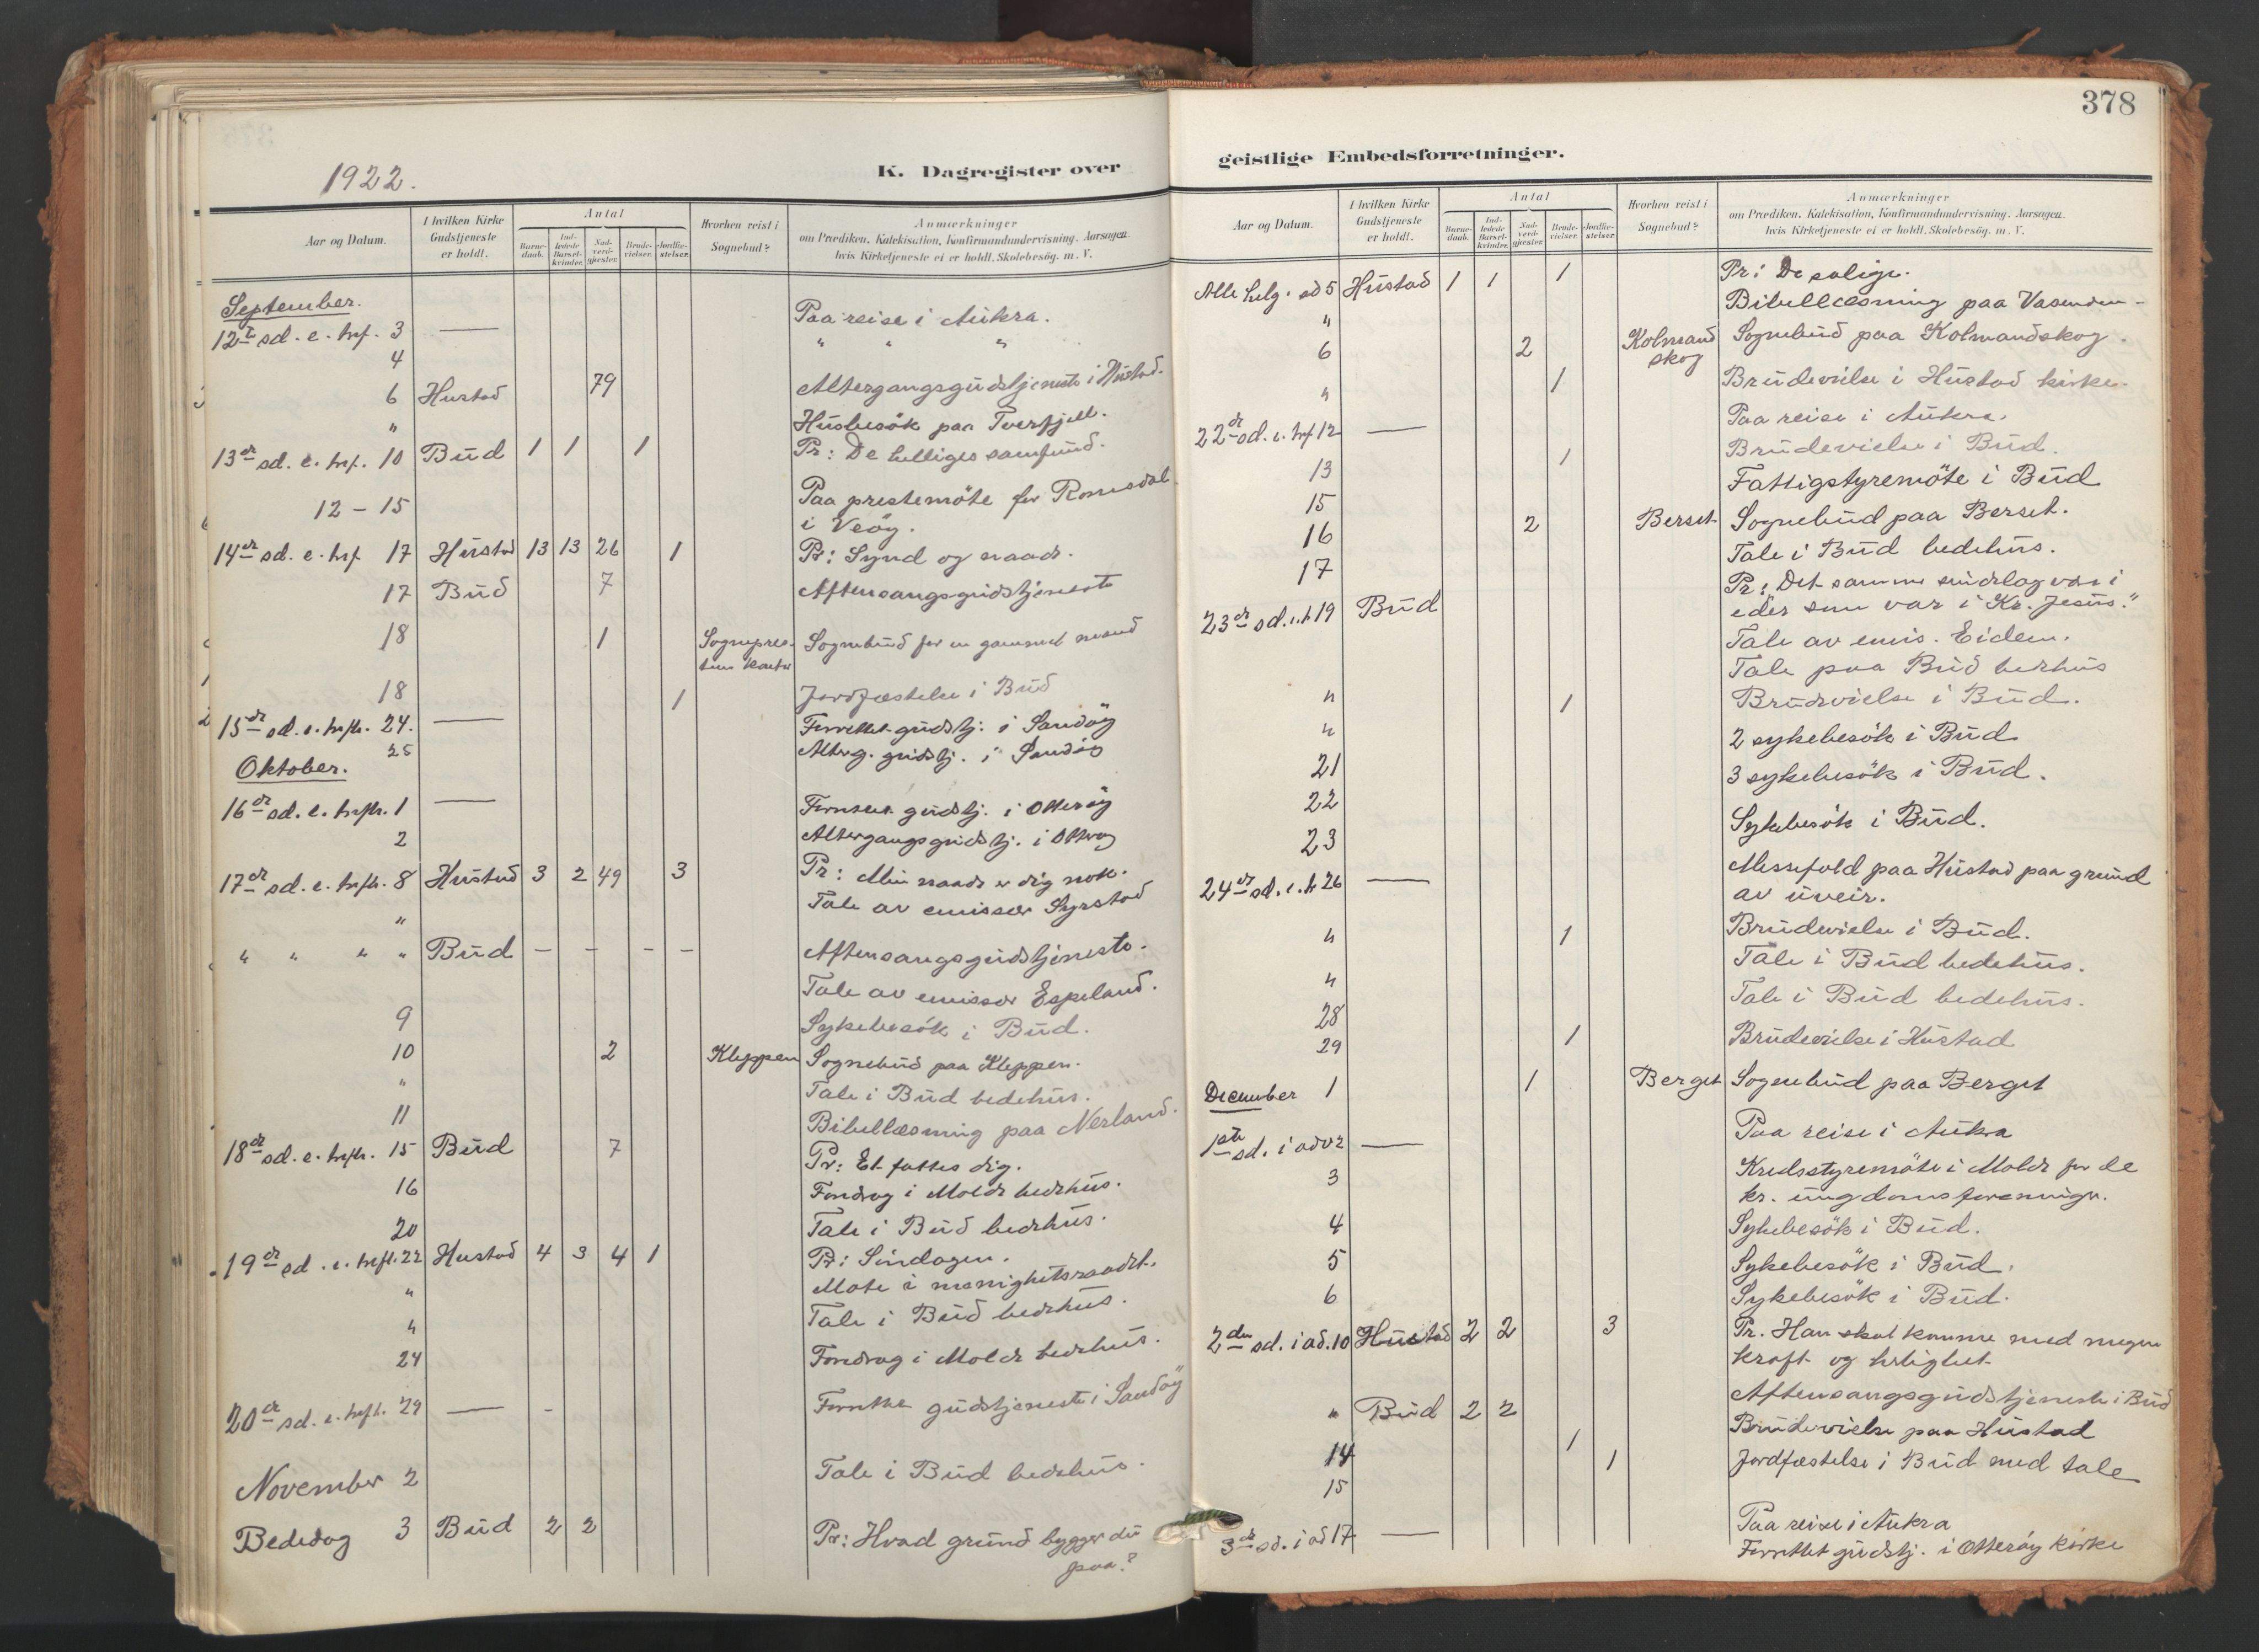 378
1922.
K. Dagregister over
geistlige Embedsforretninger.
Aar og Datum.
I hvilken Kirke Gudstjeneste er holdt.
Antal
Barne-daab. Ind-ledede Barsel-kvinder. Nad-verd-gjester. Brude-vielser. Jordfæ-stelser.
Hvorhen reist i Sognebud?
Anmærkninger
om Prædiken, Katekisation, Konfirmandundervisning. Aarsagen
hvis Kirketjeneste ei er holdt. Skolebesög. m. V.
September.
12te sd. e. tref. 3 — Paa reise i Aukra.
4 " " "
6 Hustad 79 Altergangsgudstjeneste i Hustad.
" Husbesök paa Tverfjell.
13de sd. e. tref. 10 Bud 1 1 1 Pr: De helliges samfund.
12 - 15 Paa prestemöte for Romsdal
i Veöy.
14de sd. e. tref 17 Hustad 13 13 26 1 Pr: Synd og naade.
17 Bud 7 Aftensangsgudstjeneste
18 1 Sognepres-tens kontor Sognebud for en gammel mand
18 1 Jordfæstelse i Bud
15de sd. e. trefh. 24. — Forrettet gudstj. i Sandöy
25 Alterg. gudstj. i Sandöy
Oktober.
16de sd. e. trefh. 1 — Forrettet gudstj. i Otteröy
2 Altergangsgudstj. i Otteröy
17de sd. e. trefh. 8 Hustad 3 2 49 3 Pr: Min naade er dig nok.
" Tale av emissær Syrstad
" " " " Bud - - - - Aftensangsgudstjeneste.
Tale av emissær Espeland.
9 Sykebesök i Bud.
10 2 Kleppen Sognebud paa Kleppen.
" Tale i Bud bedehus.
11 Bibellæsning paa Nerland.
18de sd. e. trefh. 15 Bud 7 Pr: Et fattes dig.
16 Foredrag i Molde bedehus.
20 Tale i Bud bedehus.
19de sd. e. trefh. 22 Hustad 4 3 4 1 Pr: Söndagen.
" Möte i menighetsraadet.
" Tale i Bud bedehus.
24 Foredrag i Molde bedehus.
20de sd. e. trefh. 29 — - Forrettet gudstjeneste i Sandöy
November 2 Tale i Bud bedehus.
Bededag 3 Bud 2 2 Pr: Hvad grund bygger du
paa?
Aar og Datum.
I hvilken Kirke Gudstjeneste er holdt.
Antal
Barne-daab. Ind-ledede Barsel-kvinder. Nad-verd-gjester. Brude-vielser. Jordfæ-stelser.
Hvorhen reist i Sognebud?
Anmærkninger
om Prædiken, Katekisation, Konfirmandundervisning. Aarsagen
hvis Kirketjeneste ei er holdt. Skolebesög. m. V.
Alle helg. sd 5 Hustad 1 1 1 Pr: De salige.
" Bibellæsning paa Vasenden-
6 2 Kolmand skog Sognebud paa Kolmandskog.
" 1 Brudevielse i Hustad kirke.
22de sd. e. tref 12 — Paa reise i Aukra.
13 1 Brudevielse i Bud.
15 Fattigstyremöte i Bud
16 2 Berset Sognebud paa Berset.
17 Tale i Bud bedehus.
23de sd. e. t. 19 Bud Pr: "Det samme sindelag vær i
eder som var i Kr. Jesus."
Tale av emis. Eidem.
Tale paa Bud bedhus
" 1 Brudevielse i Bud.
" 2 sykebesök i Bud
21 3 sykebesök i Bud.
22
23 Sykebesök i Bud.
24de sd. e. tr 26 — Messefald paa Hustad paa grund
av uveir.
" 1 Brudevielse i Bud.
" Tale i Bud bedehus.
28 Tale i Bud bedehus.
29 1 Brudevielse i Hustad
December 1 1 Berget Sognebud paa Berget
1ste sd. i adv 2 — Paa reise i Aukra
3 Kredsstyremöte i Molde for de
kr. ungdomsforeninger.
4 Sykebesök i Bud.
5 Sykebesök i Bud.
6 Sykebesök i Bud.
2den sd. i ad. 10 Hustad 2 2 3 Pr. Han skal komme med megen
kraft og herlighet
" Bud 2 2 Aftensangsgudstjeneste i Bud
14 1 Brudevielse paa Hustad
15 1 Jordfæstelse i Bud med tale
3de sd. i ad 17 — Paa reise i Aukra
Forrettet gudstj. i Otteröy kirke